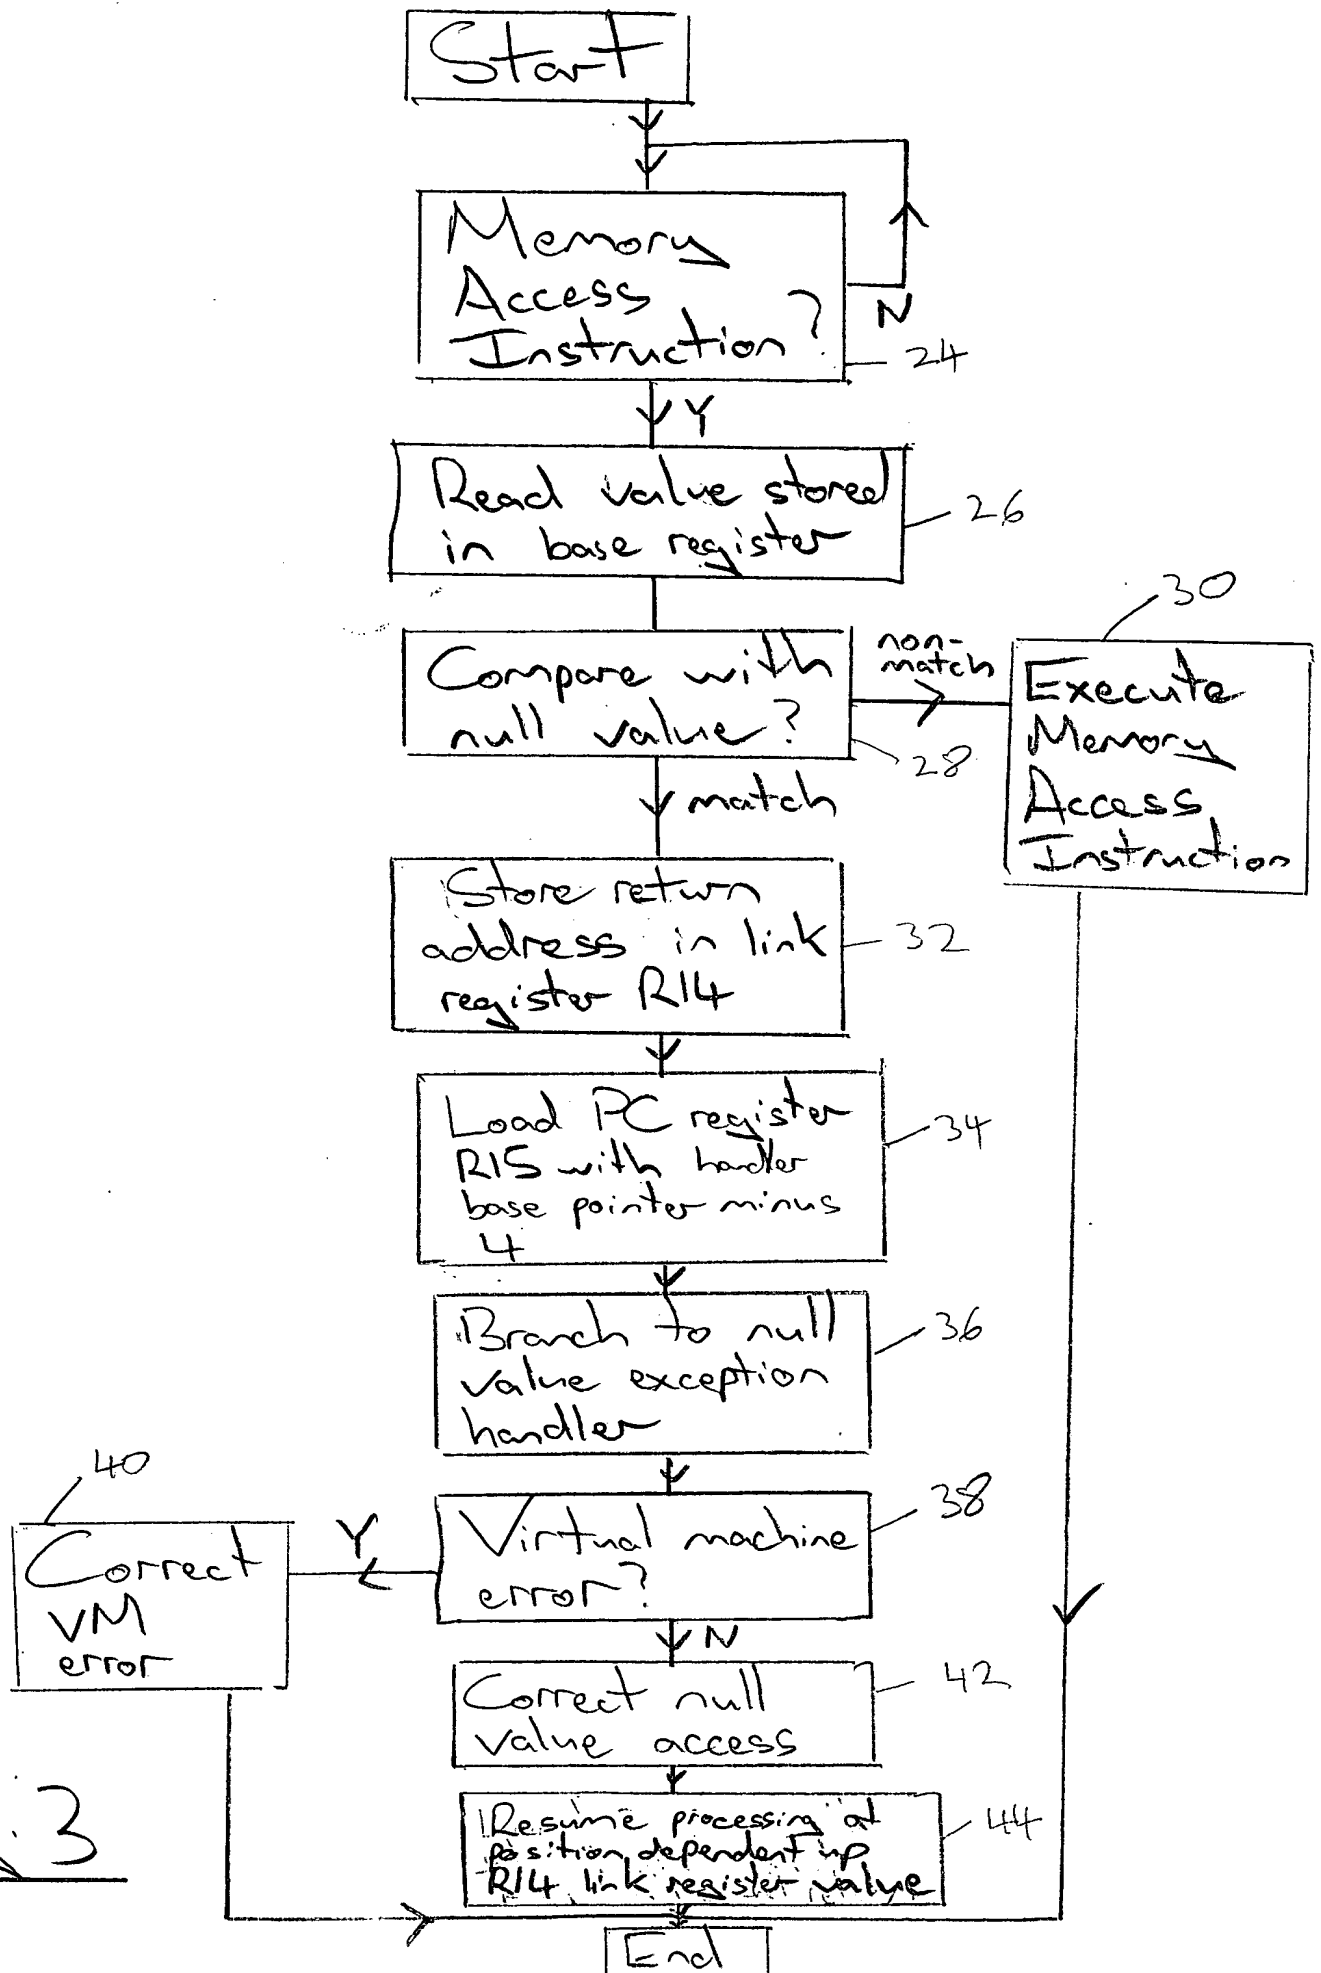 Start
Memory
Access
Instruction?
N
24
Y
Read value stored
in base register
26
Compare with
null value?
28
non-
match
30
Execute
Memory
Access
Instruction
match
Store return
address in link
register R14
32
Load PC register
R15 with handler
base pointer minus
4
34
Branch to null
value exception
handler
36
Virtual machine
error?
38
Y
40
Correct
VM
error
N
Correct null
value access
42
Resume processing at
position dependent up
R14 link register value
44
3
End